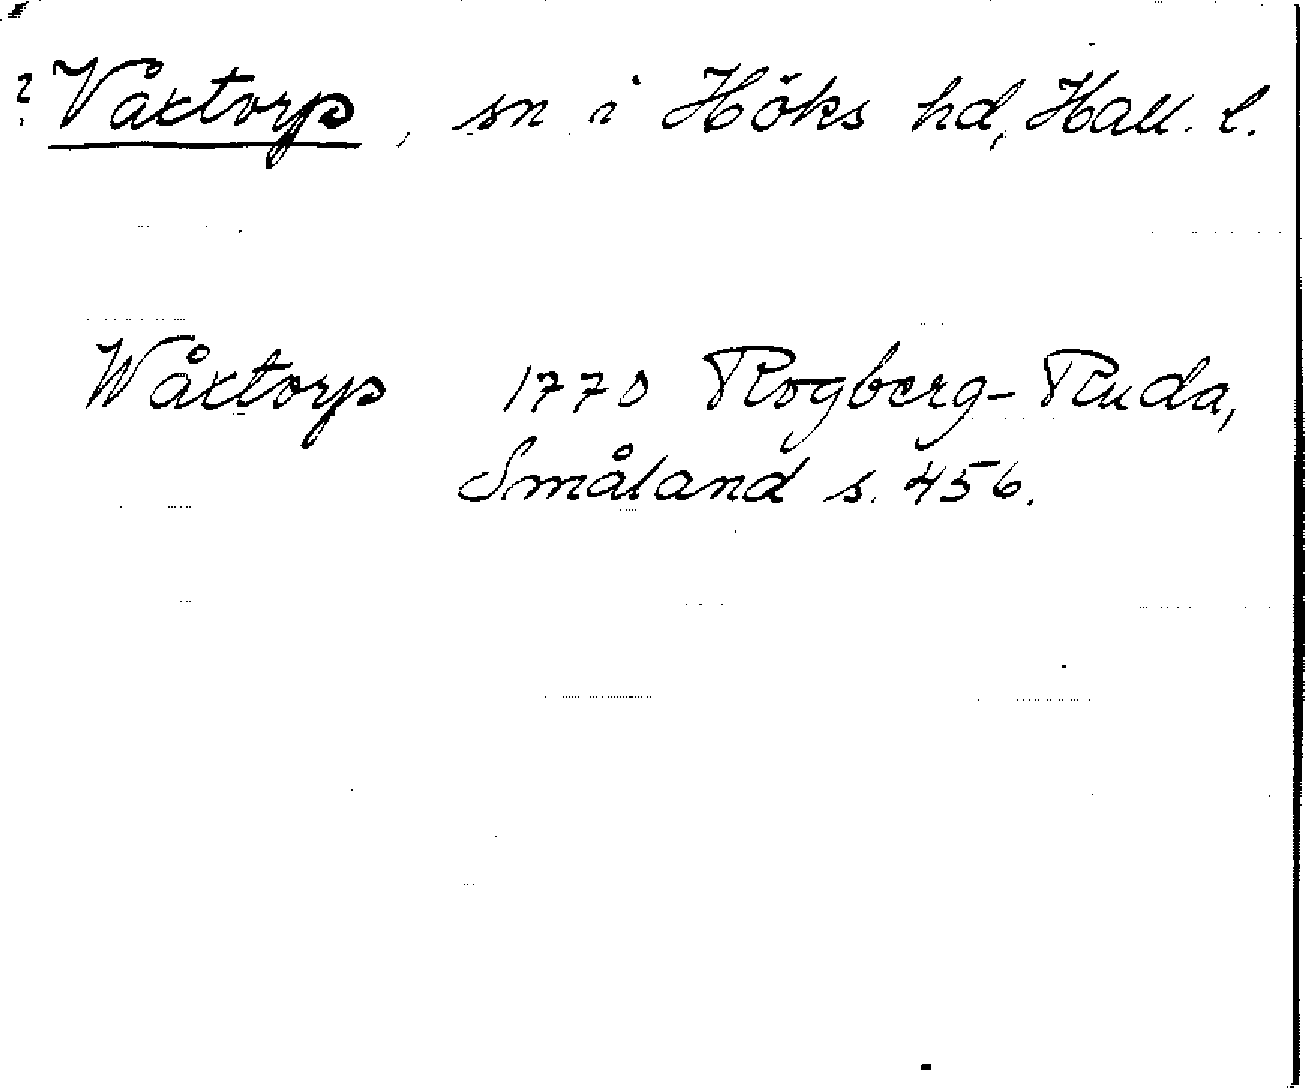 ? Våxtorp, sn i Höks hd, Hall. l.
Wåxtorp 1770 Rogberg-Ruda,
Småland s. 456.